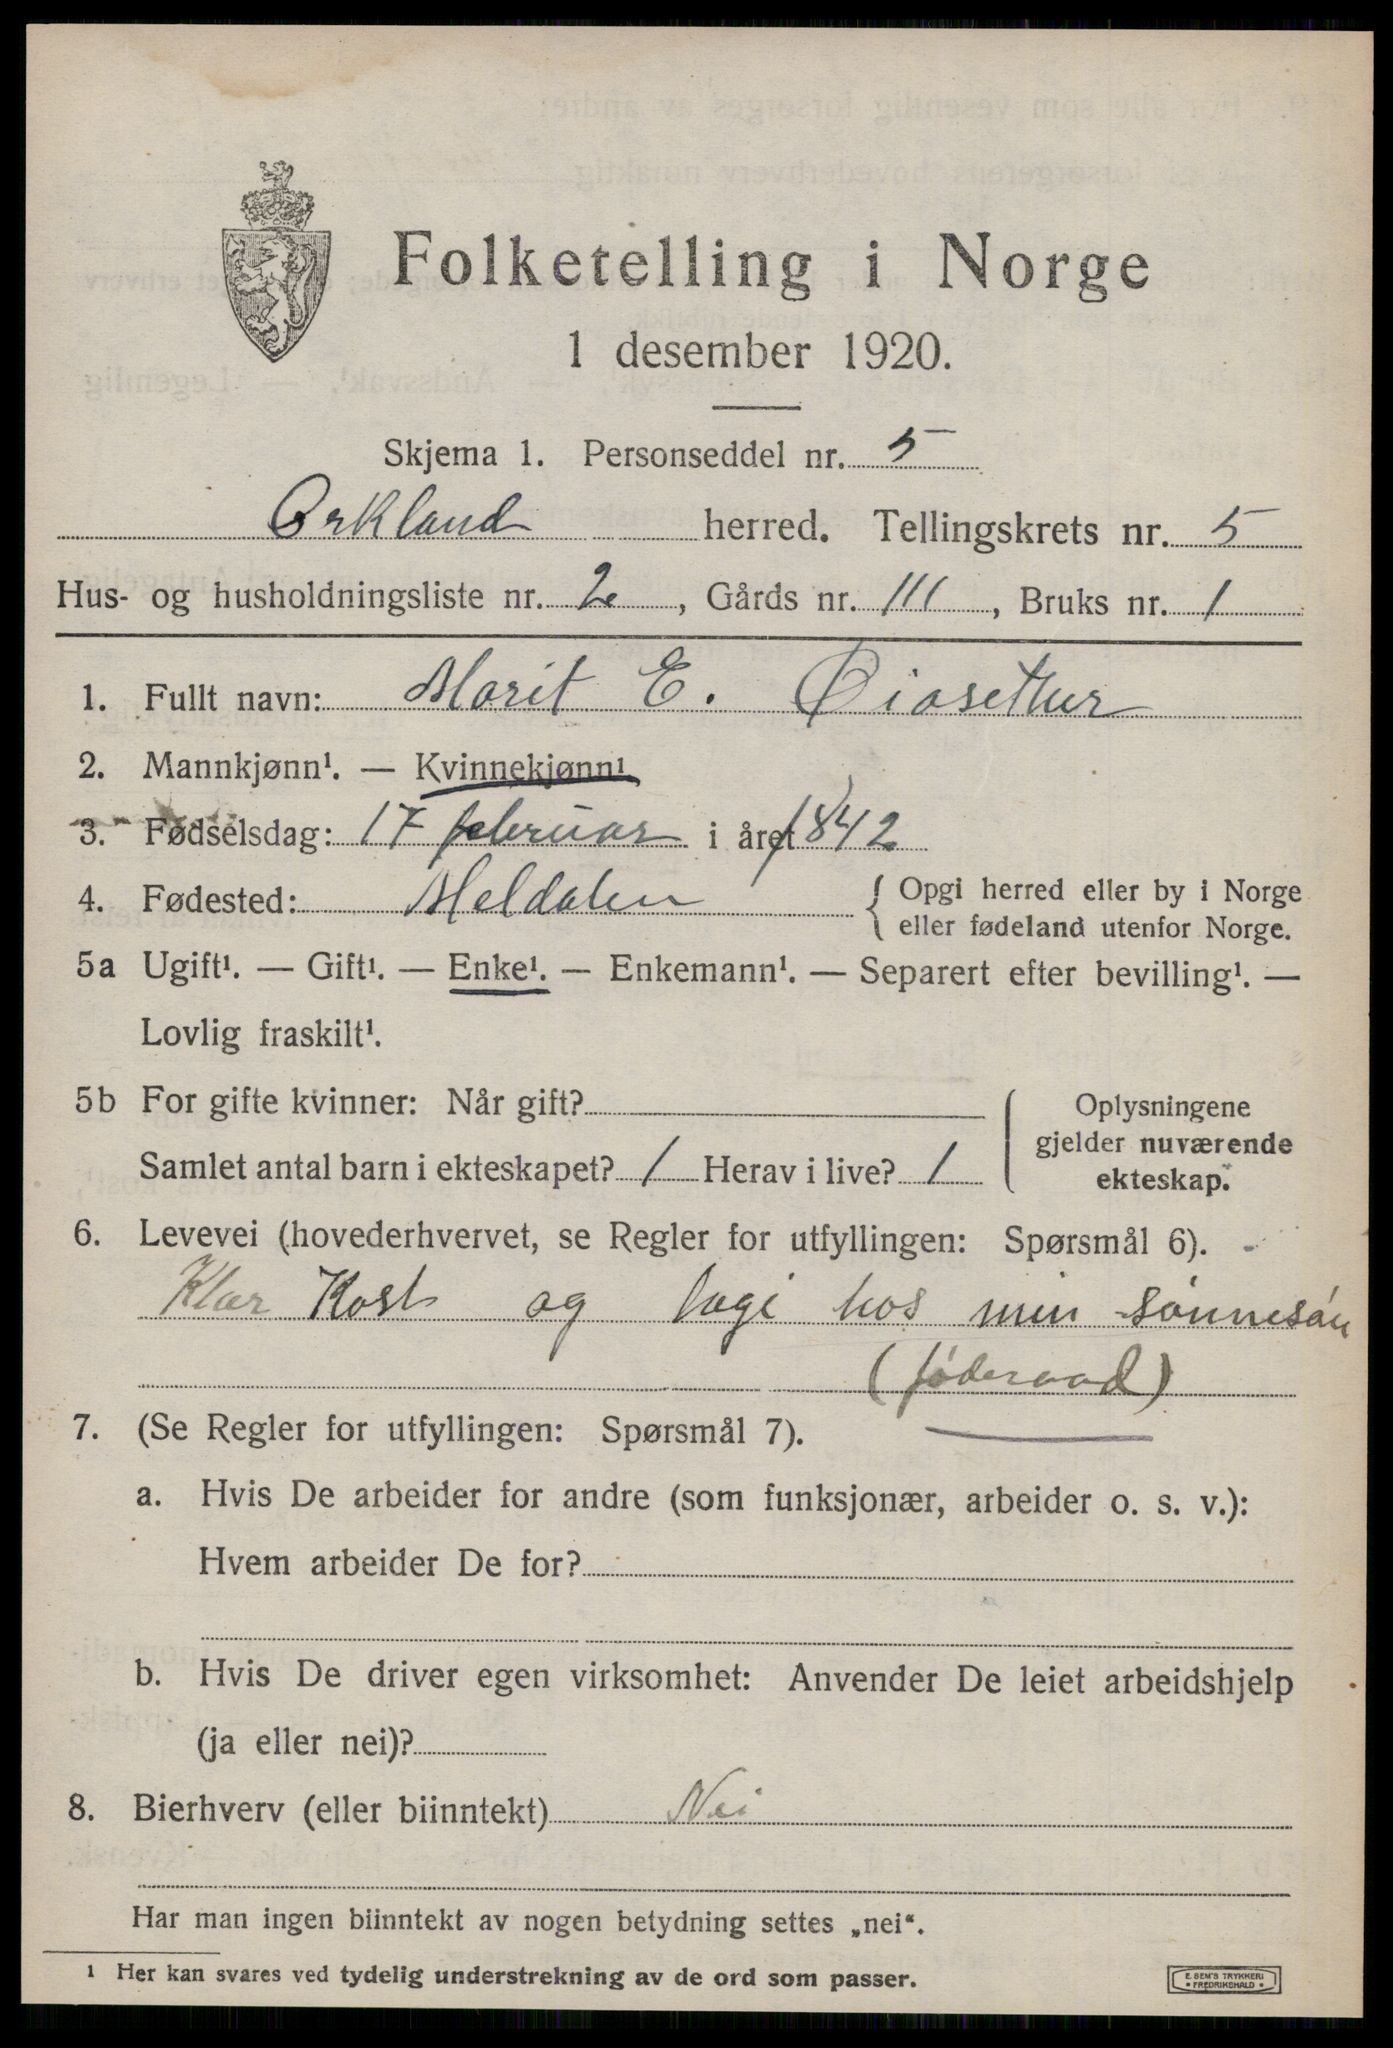 Folketelling i Norge
1 desember 1920.
Skjema 1. Personseddel nr. 5
Orkland herred. Tellingskrets nr. 5
Hus- og husholdningsliste nr. 2, Gårds nr. 111, Bruks nr. 1
1. Fullt navn: Marit E. Øiasether
2. Mannkjønn¹. — Kvinnekjønn¹
3. Fødselsdag: 17 februar i året 1842
4. Fødested: Meldalen { Opgi herred eller by i Norge
eller fødeland utenfor Norge.
5a Ugift¹. — Gift¹. — Enke¹. — Enkemann¹. — Separert efter bevilling¹. —
Lovlig fraskilt¹.
5b For gifte kvinner: Når gift?
Samlet antal barn i ekteskapet? 1 Herav i live? 1
Oplysningene
gjelder nuværende
ekteskap.
6. Levevei (hovederhvervet, se Regler for utfyllingen: Spørsmål 6).
Kost og logi hos min sønnesøn
(føderaad)
7. (Se Regler for utfyllingen: Spørsmål 7).
a. Hvis De arbeider for andre (som funksjonær, arbeider o. s. v.):
Hvem arbeider De for?
b. Hvis De driver egen virksomhet: Anvender De leiet arbeidshjelp
(ja eller nei)?
8. Bierhverv (eller biinntekt) Nei
Har man ingen biinntekt av nogen betydning settes „nei“.
¹ Her kan svares ved tydelig understrekning av de ord som passer.
E. SEM'S TRYKKERI
FREDRIKSHALD